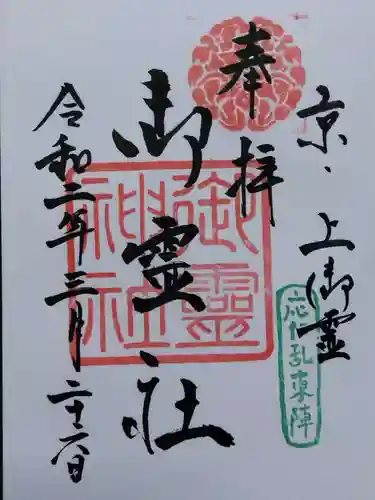 京・上御霊
応仁乱東陣
奉拝
御霊社
御靈
神社
令和二年三月二十六日